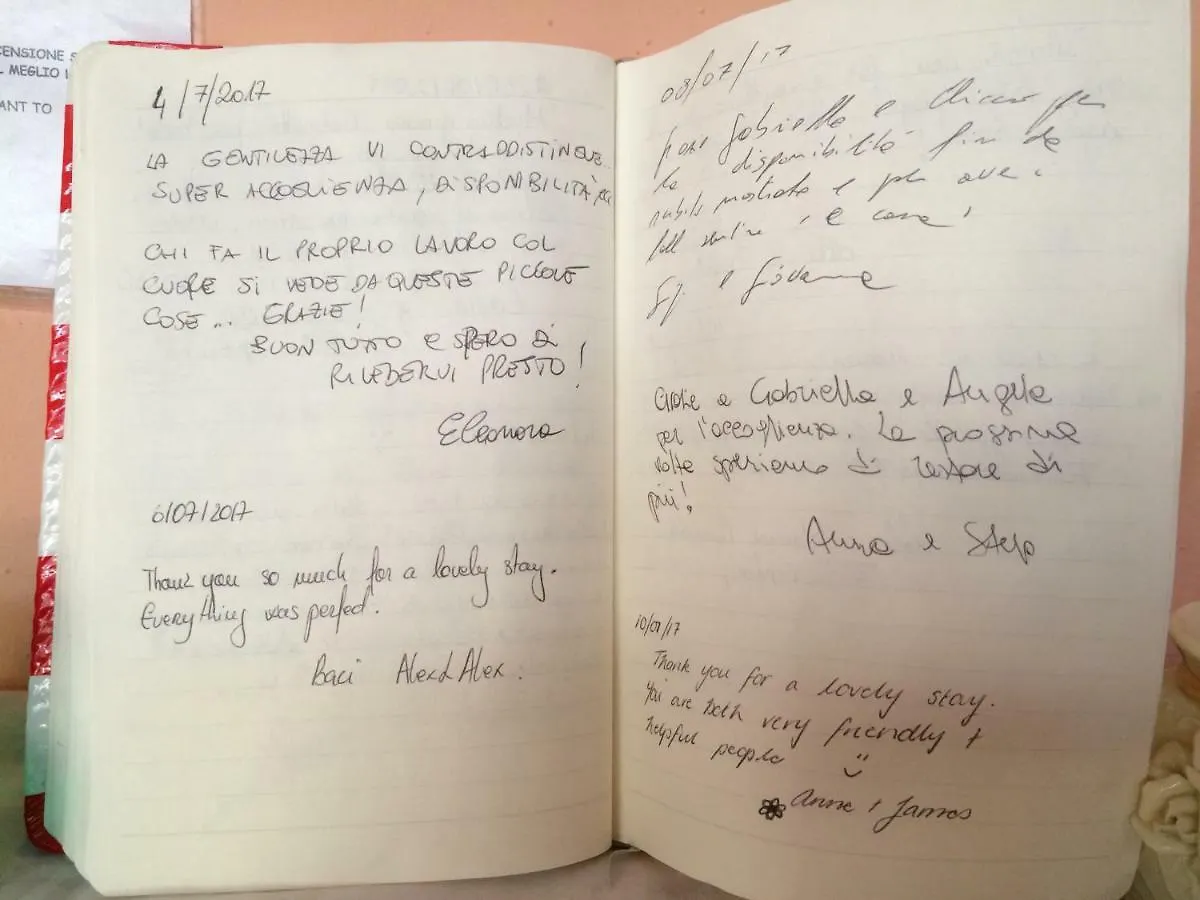 CENSIONE S
L MEGLIO I
ANT TO
4/7/2017
LA GENTILEZZA VI CONTRADDISTINGUE...
SUPER ACCOGLIENZA, DISPONIBILITÀ
CHI FA IL PROPRIO LAVORO COL
CUORE SI VEDE DA QUESTE PICCOLE
COSE... GRAZIE!
BUON TUTTO E SPERO DI
RIVEDERVI PRESTO!
Eleonora
6/07/2017
Thank you so much for a lovely stay.
Everything was perfect.
Baci Alex & Alex.
08/07/17
Gabriella e per
la disponibilità fin da
subito mostrata e per aver
fatti sentire "a casa"
e Giovanna
Grazie a Gabriella e Angela
per l'accoglienza. La prossima
volta speriamo di restare di
più!
Anna e Stefo
10/07/17
Thank you for a lovely stay.
You are both very friendly +
helpful people
Anne + James